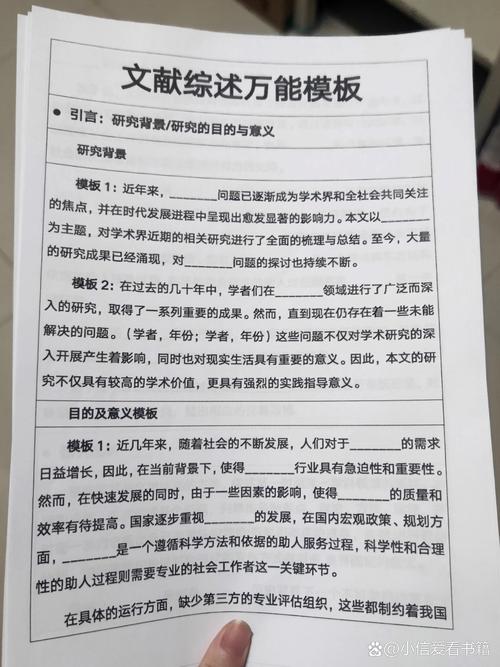 文献综述万能模板
● 引言：研究背景/研究的目的与意义
研究背景
模板1：近年来，________问题已逐渐成为学术界和全社会共同关注
的焦点，并在时代发展进程中呈现出愈发显著的影响力。本文以________
为主题，对学术界近期的相关研究进行了全面的梳理与总结。至今，大量
的研究成果已经涌现，对________问题的探讨也持续不断。
模板2：在过去的几十年中，学者们在________领域进行了广泛而深
入的研究，取得了一系列重要的成果。然而，直到现在仍存在着一些未能
解决的问题。（学者，年份；学者，年份）这些问题不仅对学术研究的深
入开展产生着影响，同时也对现实生活具有重要的意义。因此，本文的研
究不仅具有较高的学术价值，更具有强烈的实践指导意义。
目的及意义模板
模板1：近几年来，随着社会的不断发展，人们对于________的需求
日益增长，因此，在当前背景下，使得________行业具有急迫性和重要性。
然而，在快速发展的同时，由于一些因素的影响，使得________的质量和
效率有待提高。国家逐步重视________的发展，在国内宏观政策、规划方
面，________是一个遵循科学方法和依据的助人服务过程，科学性和合理
性的助人过程则需要专业的社会工作者这一关键环节。
在具体的运行方面，缺少第三方的专业评估组织，这些都制约着我国
@小信爱看书籍